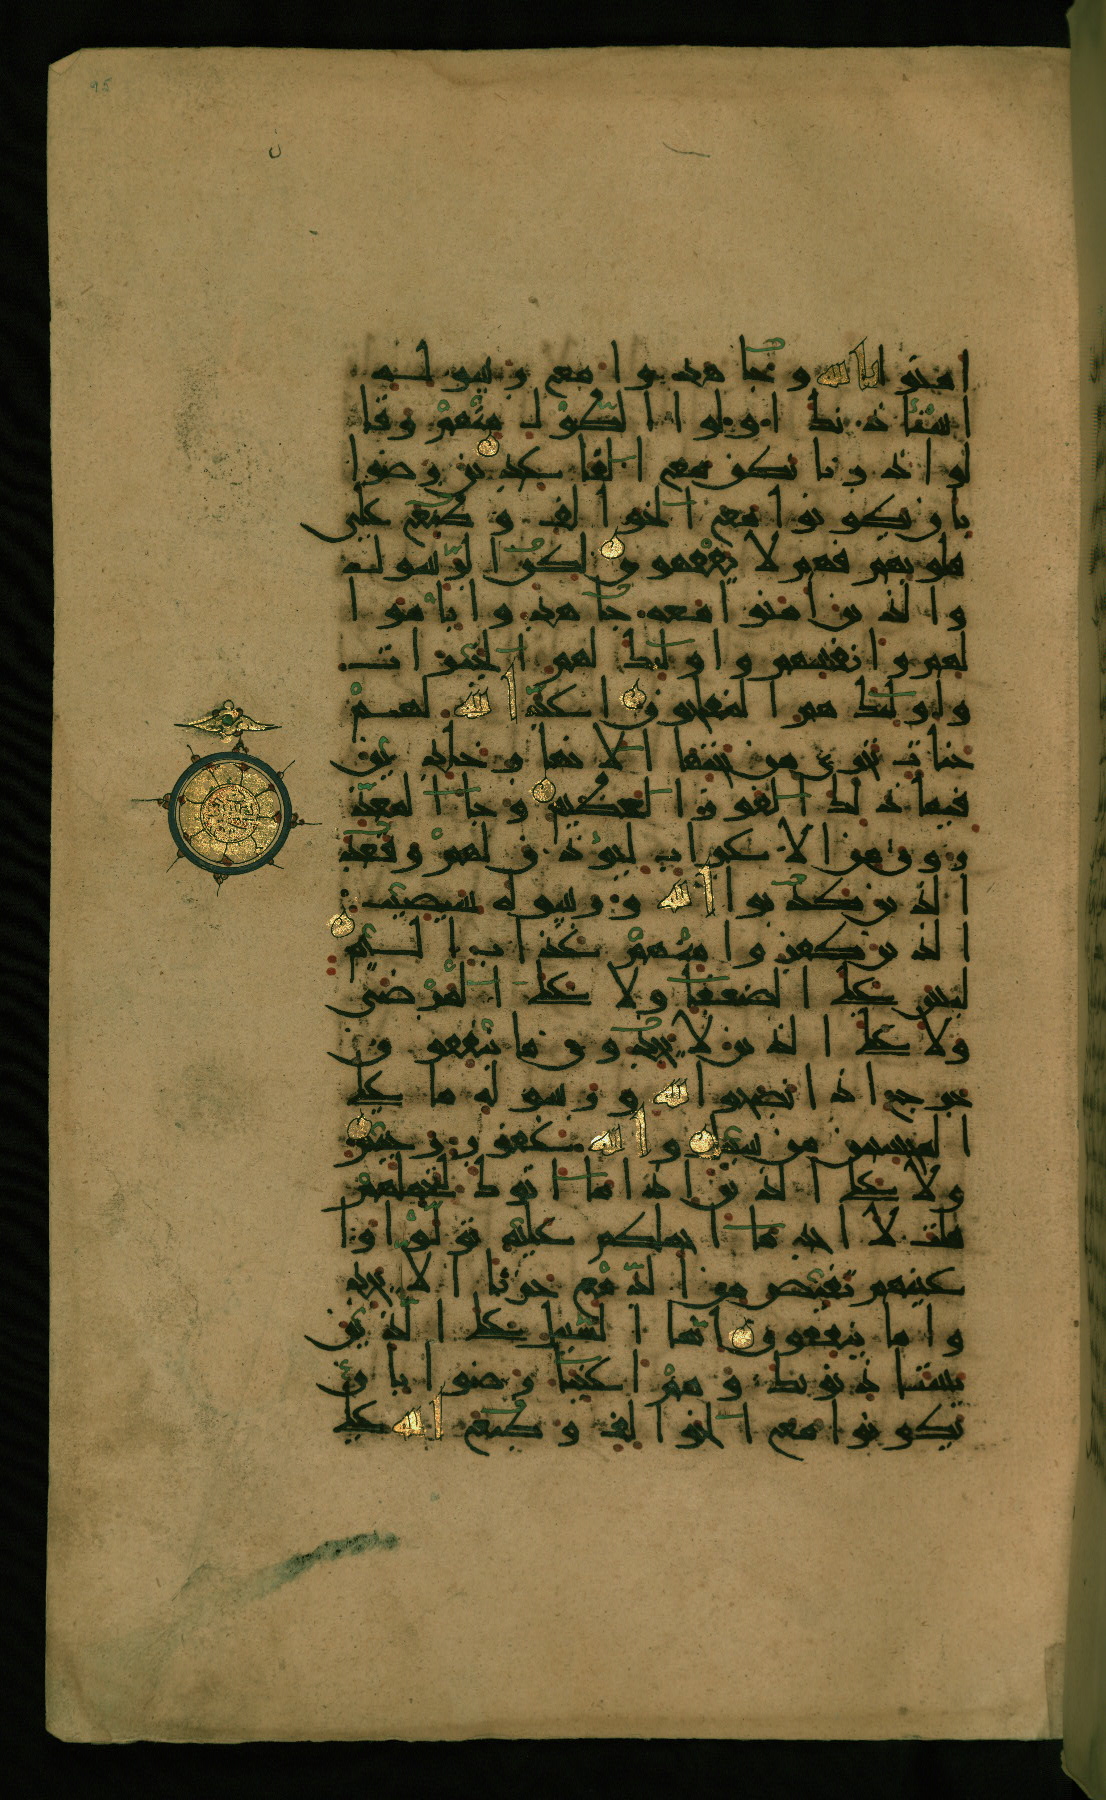 ٩٥
امنوا بالله وجاهدوا مع رسوله
استاذنك اولوا الطول منهم وقا
لوا ذرنا نكن مع القاعدين رضوا
بان يكونوا مع الخوالف وطبع على
قلوبهم فهم لا يفقهون لكن الرسول
والذين امنوا معه جاهدوا باموا
لهم وانفسهم واولئك لهم الخيرات
واولئك هم المفلحون اعد الله لهم
جنات تجري من تحتها الانهار خالدين
فيها ذلك الفوز العظيم وجا المعذ
رون من الاعراب ليوذن لهم وقعد
الذين كذبوا الله ورسوله سيصيب
الذين كفروا منهم عذاب اليم
ليس على الضعفا ولا على المرضى
ولا على الذين لا يجدون ما ينفقون
حرج اذا نصحوا لله ورسوله ما على
المحسنين من سبيل والله غفور رحيم
ولا على الذين اذا ما اتوك لتحملهم
قلت لا اجد ما احملكم عليه تولوا وا
عينهم تفيض من الدمع حزنا الا يجد
وا ما ينفقون انما السبيل على الذين
يستاذنونك وهم اغنيا رضوا بان
يكونوا مع الخوالف وطبع الله على